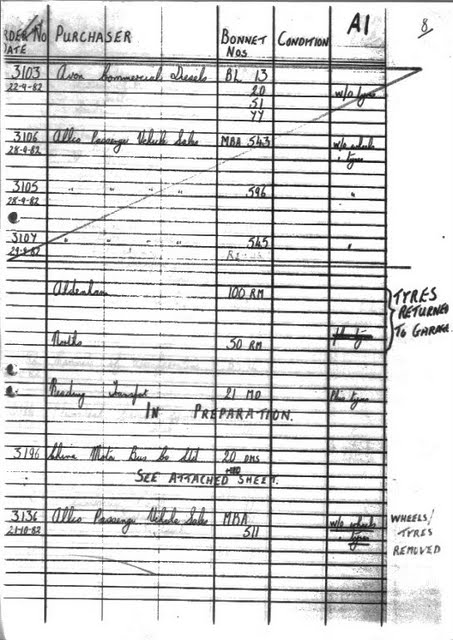 A1 8
ORDER No PURCHASER BONNET NOS CONDITION
DATE
3103 Avon Commercial Diesels BL 13
22-9-82 20 w/o tyres
51
YY
3106 Allco Passenger Vehicle Sales MBA 543 w/o wheels
28-9-82 + tyres
3105 " " " " 596 "
28-9-82
3107 " " " " 545 "
29-9-82
Aldenham 100 RM TYRES
RETURNED
TO GARAGE
Norths 50 RM
Reading Transport 21 MD Plus tyres
IN PREPARATION.
3196 China Motor Bus Co Ltd 20 DMS
SEE ATTACHED SHEET.
3136 Allco Passenger Vehicle Sales MBA w/o wheels WHEELS/
21-10-82 511 + tyres TYRES
REMOVED